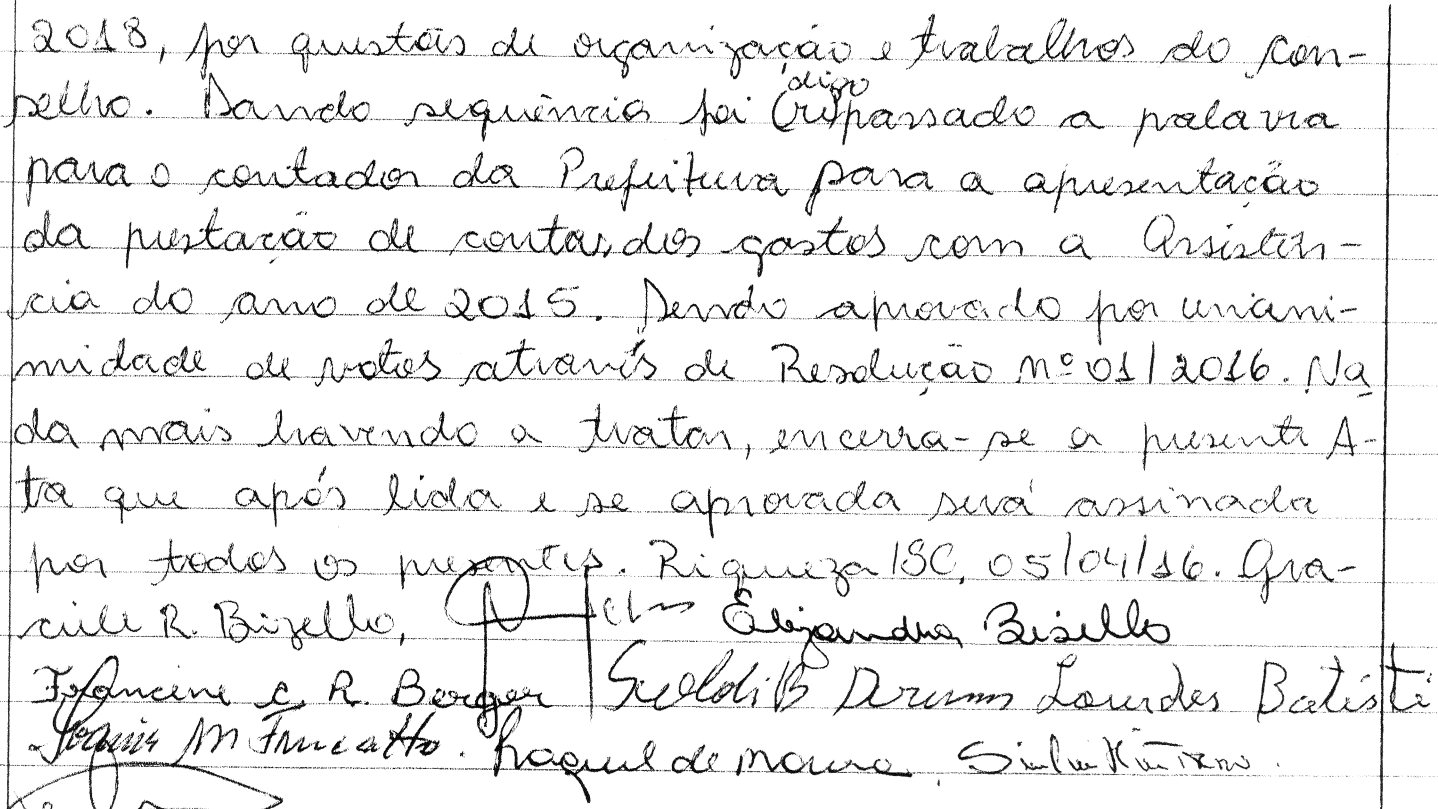 2018, por questões de organização e trabalhos do con-
selho. Dando sequência foi (re) digo passado a palavra
para o contador da Prefeitura para a apresentação
da prestação de contas, dos gastos com a Assistên-
cia do ano de 2015. Sendo aprovado por unani-
midade de votos através de Resolução nº 01/2016. Na
da mais havendo a tratar, encerra-se a presente A-
ta que após lida e se aprovada será assinada
por todos os presentes. Riqueza/SC, 05/04/16. Gra-
ciele R. Bizello, Bisello
Francine C. R. Berger Lourdes Batisti
M Raquel de Moura